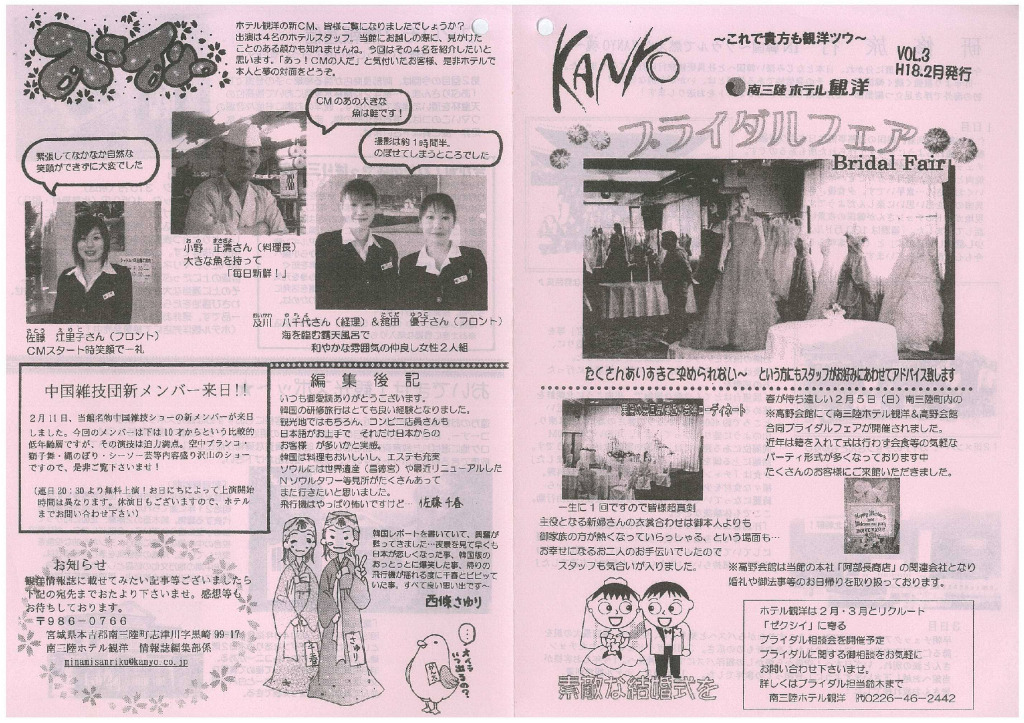 ホテル観洋の新CM、皆様ご覧になりましたでしょうか?
出演は4名のホテルスタッフ。当館にお越しの際に、見かけた
ことのある顔かも知れませんね。今回はその4名を紹介したいと
思います。「あっ!CMの人だ」と気付いたお客様、是非ホテルで
本人と夢の対面をどうぞ。
緊張してなかなか自然な
笑顔ができずに大変でした
CMのあの大きな
魚は鮭です!
撮影は約1時間半。
のぼせてしまうところでした
さとう えりこ
佐藤 江里子さん(フロント)
CMスタート時笑顔で一礼
おの まさきよ
小野 正清さん(料理長)
大きな魚を持って
「毎日新鮮!」
おいかわ やちよ たてだ ゆうこ
及川 八千代さん(経理)&舘田 優子さん(フロント)
海を臨む露天風呂で
和やかな雰囲気の仲良し女性2人組
中国雑技団新メンバー来日!!
2月11日、当館名物中国雑技ショーの新メンバーが来日
しました。今回のメンバーは下は10才からという比較的
低年齢層ですが、その演技は迫力満点。空中ブランコ・
獅子舞・縄のぼり・シーソー芸等内容盛り沢山のショー
ですので、是非ご覧下さいませ!
(毎日20:30より無料上演!お日にちによって上演開始
時間は異なります。休演日もございますので、ホテル
までお問い合わせ下さい)
お知らせ
観洋情報誌に載せてみたい記事等ございましたら
下記の宛先までおたより下さいませ。感想等も
お待ちしております。
〒986-0766
宮城県本吉郡南三陸町志津川字黒崎99-17
南三陸ホテル観洋 情報誌編集部係
minamisanriku@kanyo.co.jp
編集後記
いつもご愛読ありがとうございます。
韓国の研修旅行はとても良い経験となりました。
観光地ではもちろん、コンビニ店員さんも
日本語がお上手で それだけ日本からの
お客様 が多いかと実感。
韓国は料理もおいしいし、エステも充実
ソウルには世界遺産(昌徳宮)や最近リニューアルした
Nソウルタワー等見所がたくさんあって
また行きたいと思いました。
飛行機はやっぱり怖いですけど… 佐藤千春
韓国レポートを書いていて、興奮が
甦ってきました…夜景を見て早くも
日本が恋しくなった事、韓国版の
おっとっとに爆笑した事、帰りの
飛行機が揺れる度に千春とビビッて
いた事。すべて良い思い出です~
西條さゆり
千春
さゆり
KANYO
~これで貴方も観洋ツウ~
VOL.3
H18.2月発行
南三陸ホテル観洋
ブライダルフェア
Bridal Fair
たくさんありすぎて決められない~ という方にもスタッフがお好みにあわせてアドバイス致します
コーディネート
春が待ち遠しい2月5日(日)南三陸町内の
※高野会館にて南三陸ホテル観洋&高野会館
合同ブライダルフェアが開催されました。
近年は籍を入れて式は行わず会食等の気軽な
パーティ形式が多くなっております中
たくさんのお客様にご来館いただきました。
一生に1回ですので皆様超真剣
主役となる新婦さんの衣裳合わせは御本人よりも
御家族の方が熱くなっていらっしゃる、という場面も…
お幸せになるお二人のお手伝いでしたので
スタッフも気合いが入りました。
※高野会館は当館の本社「阿部長商店」の関連会社となり
婚礼や御法事等のお日帰りを取り扱っております。
素敵な結婚式を
ホテル観洋は2月・3月とリクルート
「ゼクシイ」に寄る
ブライダル相談会を開催予定
ブライダルに関する御相談をお気軽に
お問い合わせ下さいませ。
詳しくはブライダル担当鈴木まで
南三陸ホテル観洋 ℡0226-46-2442